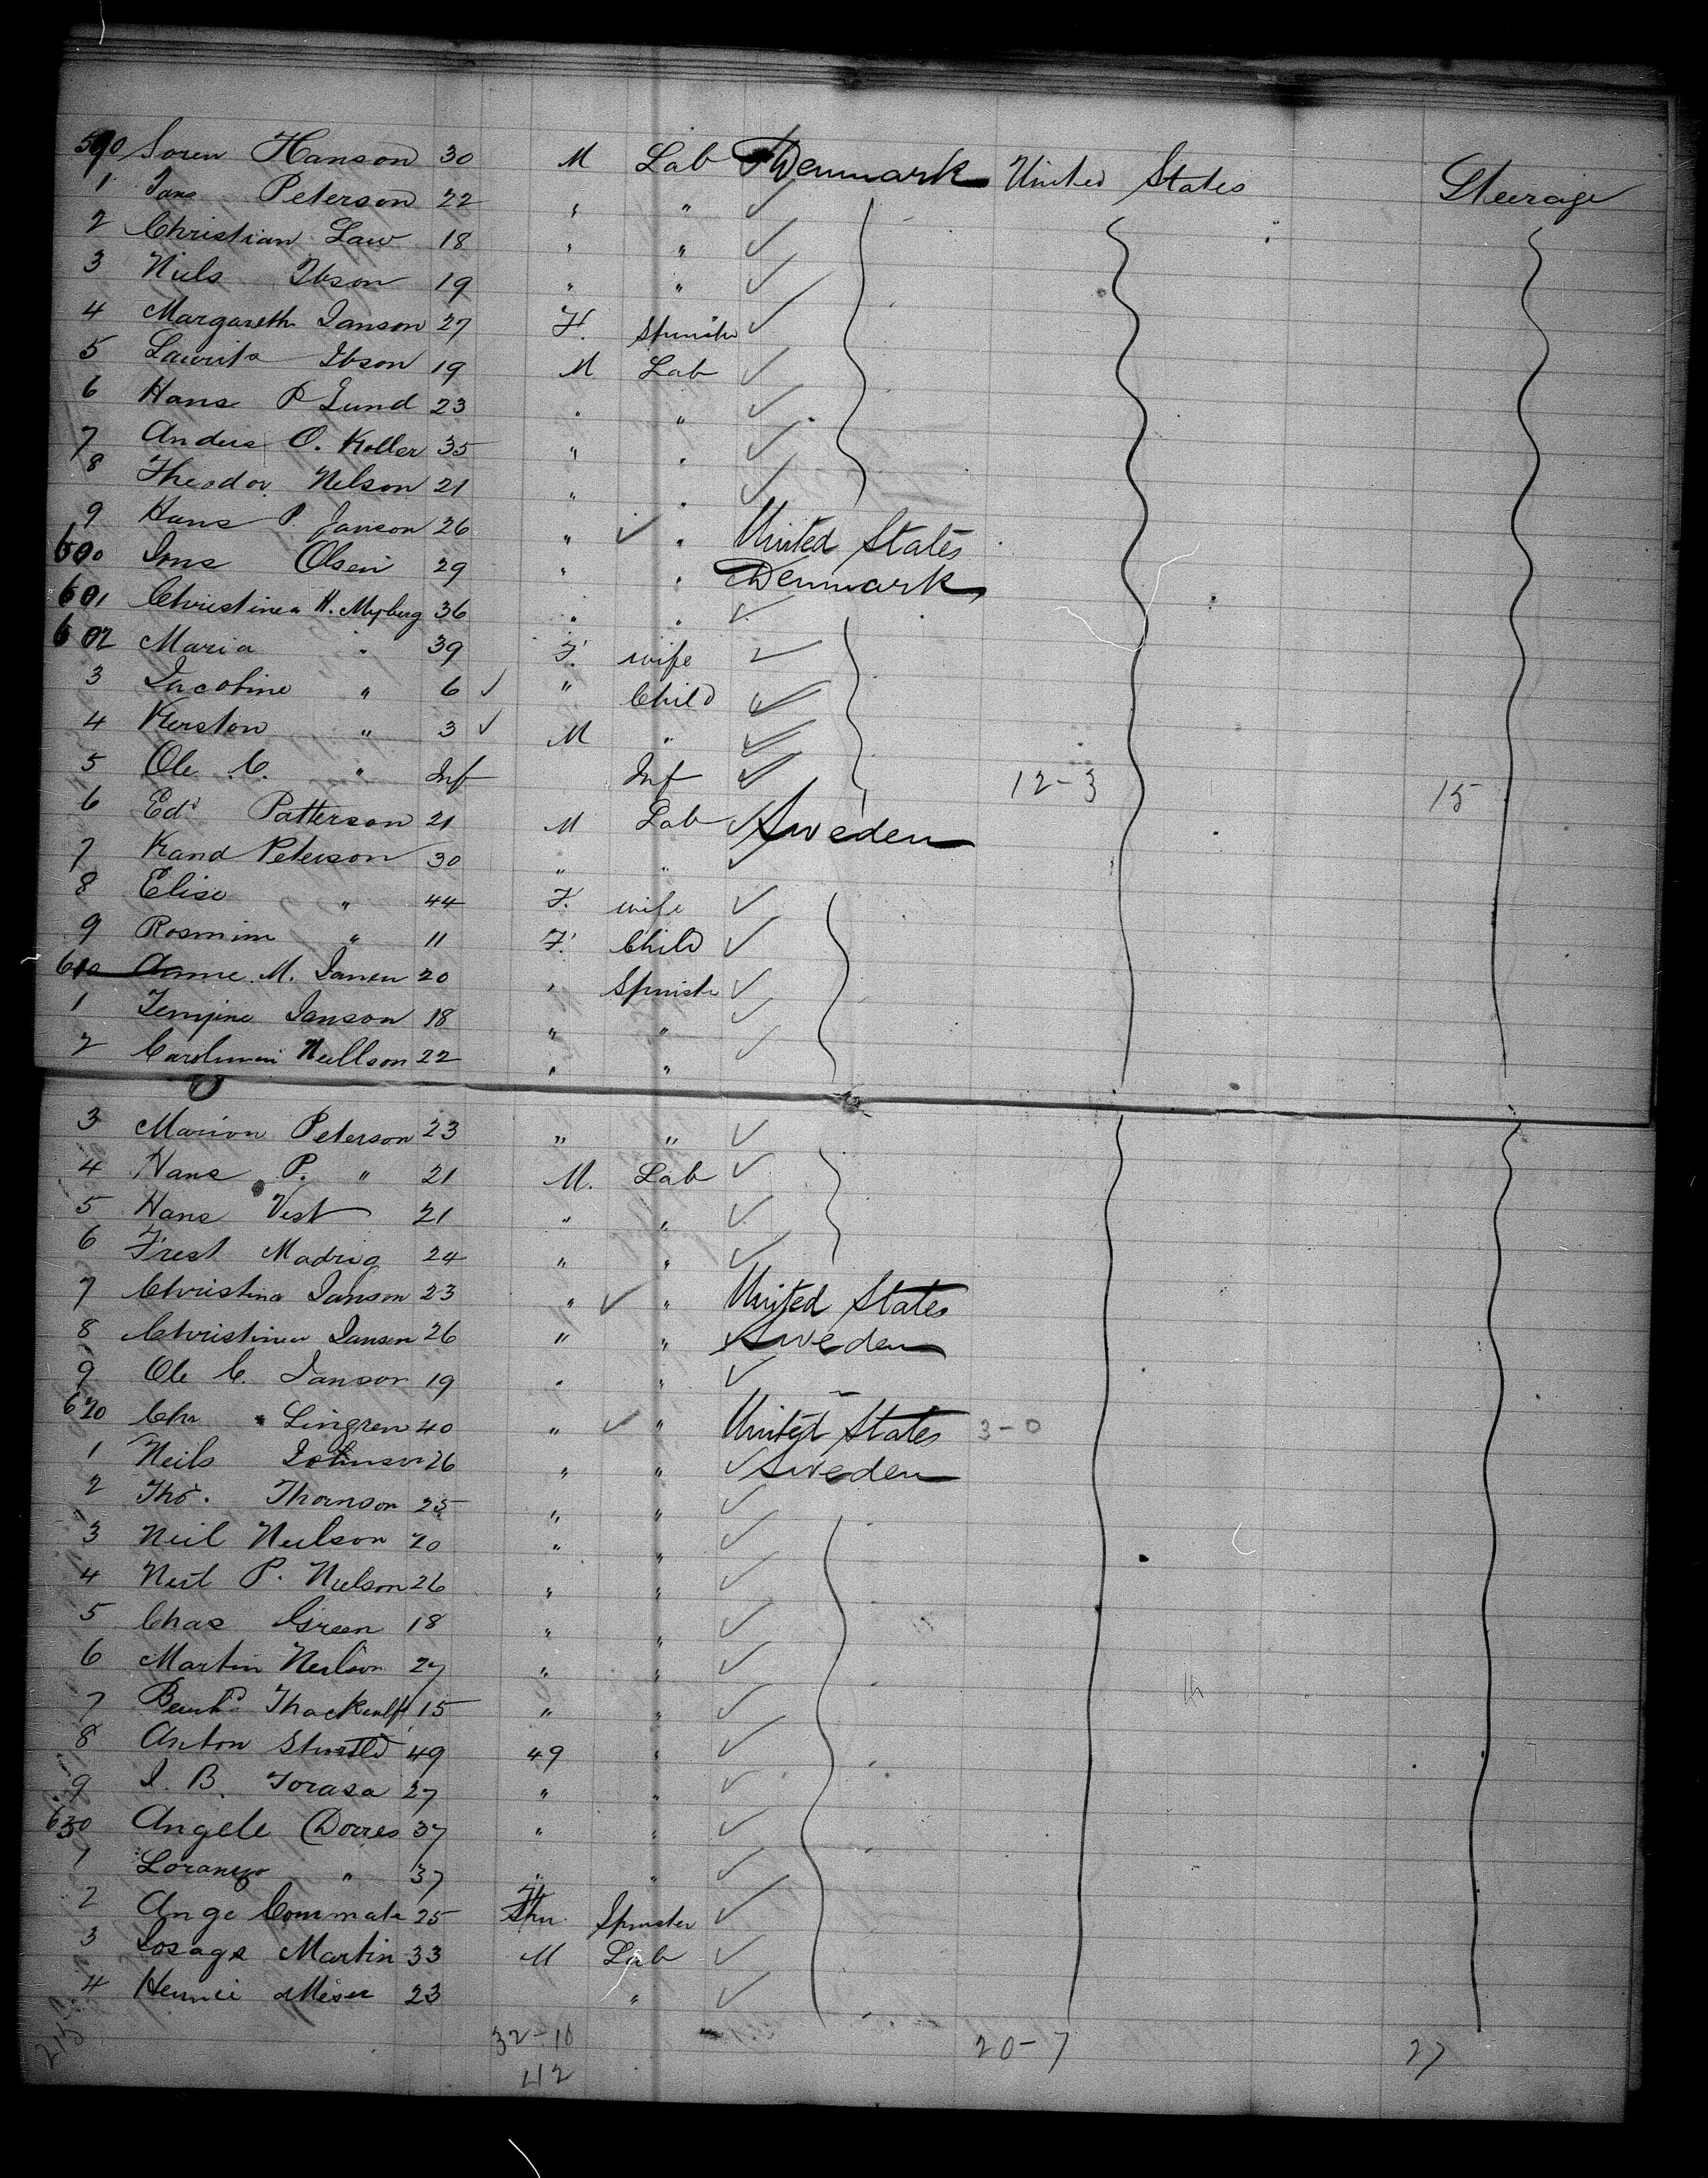 590 Soren Hanson 30 M Lab Denmark United States Steerage
1 Jans Peterson 22 " "
2 Christian Law 18 " "
3 Niels Ibson 19 " "
4 Margareth Janson 27 F. Spinster
5 Laurits Ibson 19 M Lab
6 Hans P Lund 23 " "
7 Anders O. Koller 35 " "
8 Theodor Nelson 21 " "
9 Hans P. Janson 26 " " United States
600 Jons Olsen 29 " " Denmark
601 Christinea H. Myberg 36 " "
602 Maria " 39 F. wife
3 Jacobine " 6 " Child
4 Kerston " 3 M "
5 Ole C. " Inf Inf 12-3 15
6 Edd Patterson 21 M Lab Sweden
7 Kand Peterson 30 " "
8 Elise " 44 F. wife
9 Rosmine " 11 F. Child
610 Anne M. Jansen 20 " Spinste
1 Janson 18 " "
2 Neilson 22 " "
3 Marion Peterson 23 " "
4 Hans P. " 21 M. Lab
5 Hans Vest 21 " "
6 Frest Madrig 24 " "
7 Christina Janson 23 " " United States
8 Christinea Jansen 26 " " Sweden
9 Ole C. Janson 19 " "
620 Chr " Lingren 40 " " United States 3-0
1 Neils Johnson 26 " " Sweden
2 Tho. Thomson 25 " "
3 Neil Neilson 20 " "
4 Neil P. Nielson 26 " "
5 Chas Green 18 " "
6 Martin Neilson 27 " "
7 15 " "
8 Anton 49 49 "
9 J. B. Torasa 27 " "
630 Angele Dorres 37 " "
1 Loranzo " 37 " "
2 Ange Commata 25 Spinster
3 Josage Martin 33 M Lab
4 23 "
215 32-10 20-7 27
42